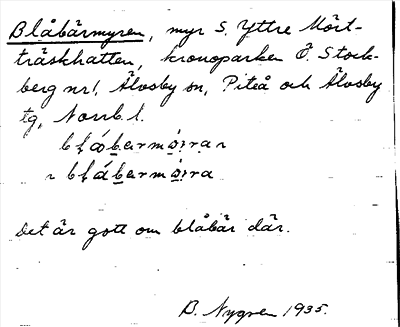 Blåbärmyren, myr S. Yttre Mört-
träskhatten, kronoparken Ö. Stock-
berg nr 1, Älvsby sn, Piteå och Älvsby
tg, Norrb. l.
blåbarmo̱i̯ran
~ blåbarmo̱i̯ra
Det är gott om blåbär där.
B. Nygren 1935.